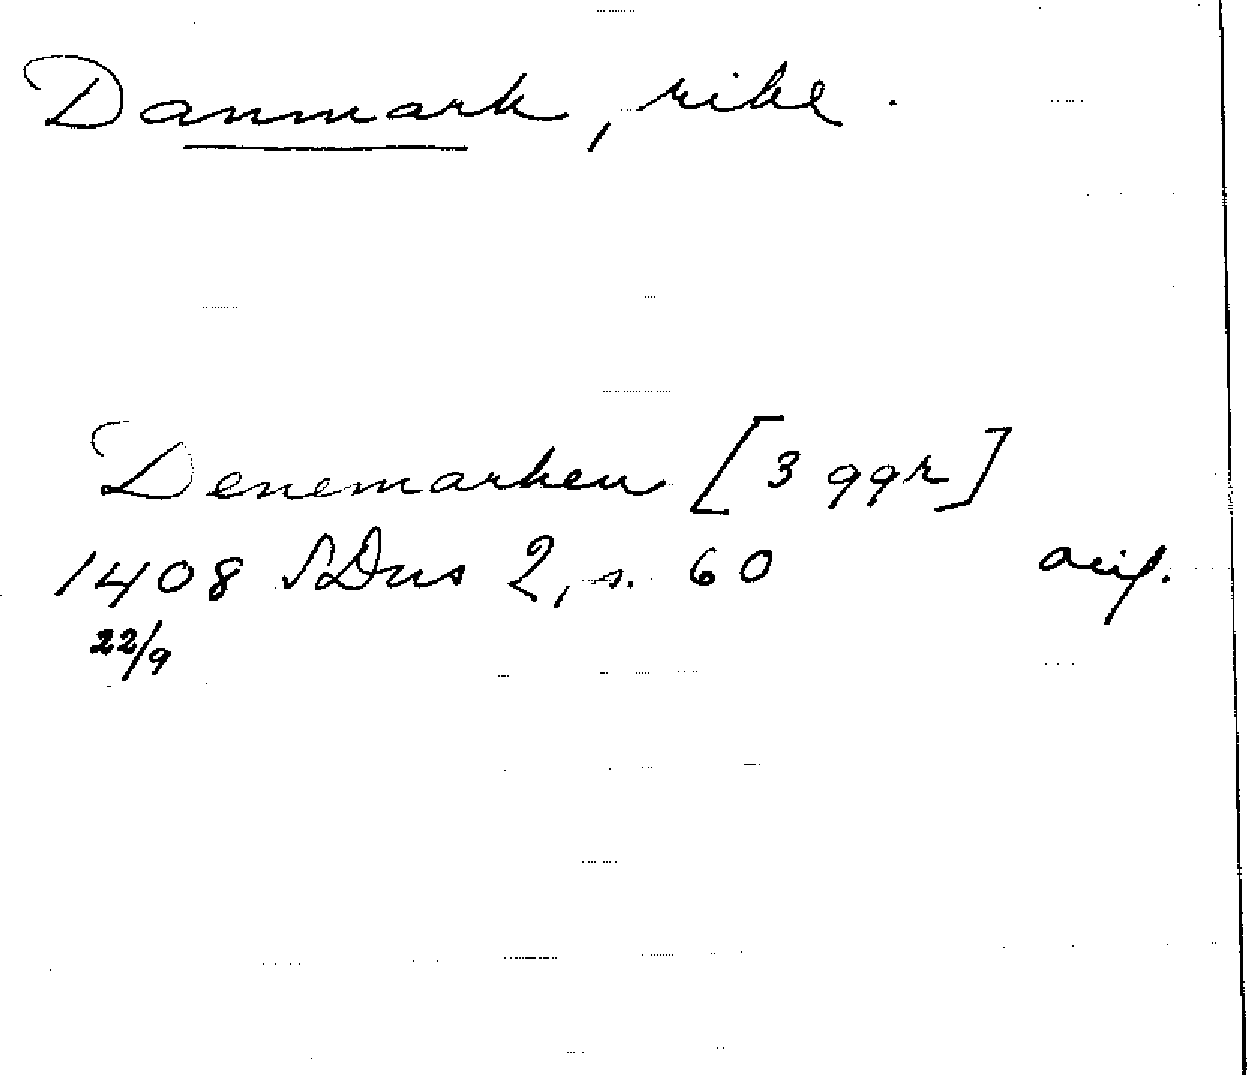 Danmark, rike.
Denemarken [3 ggr]
1408 SDns 2, s. 60 avip.
22/9